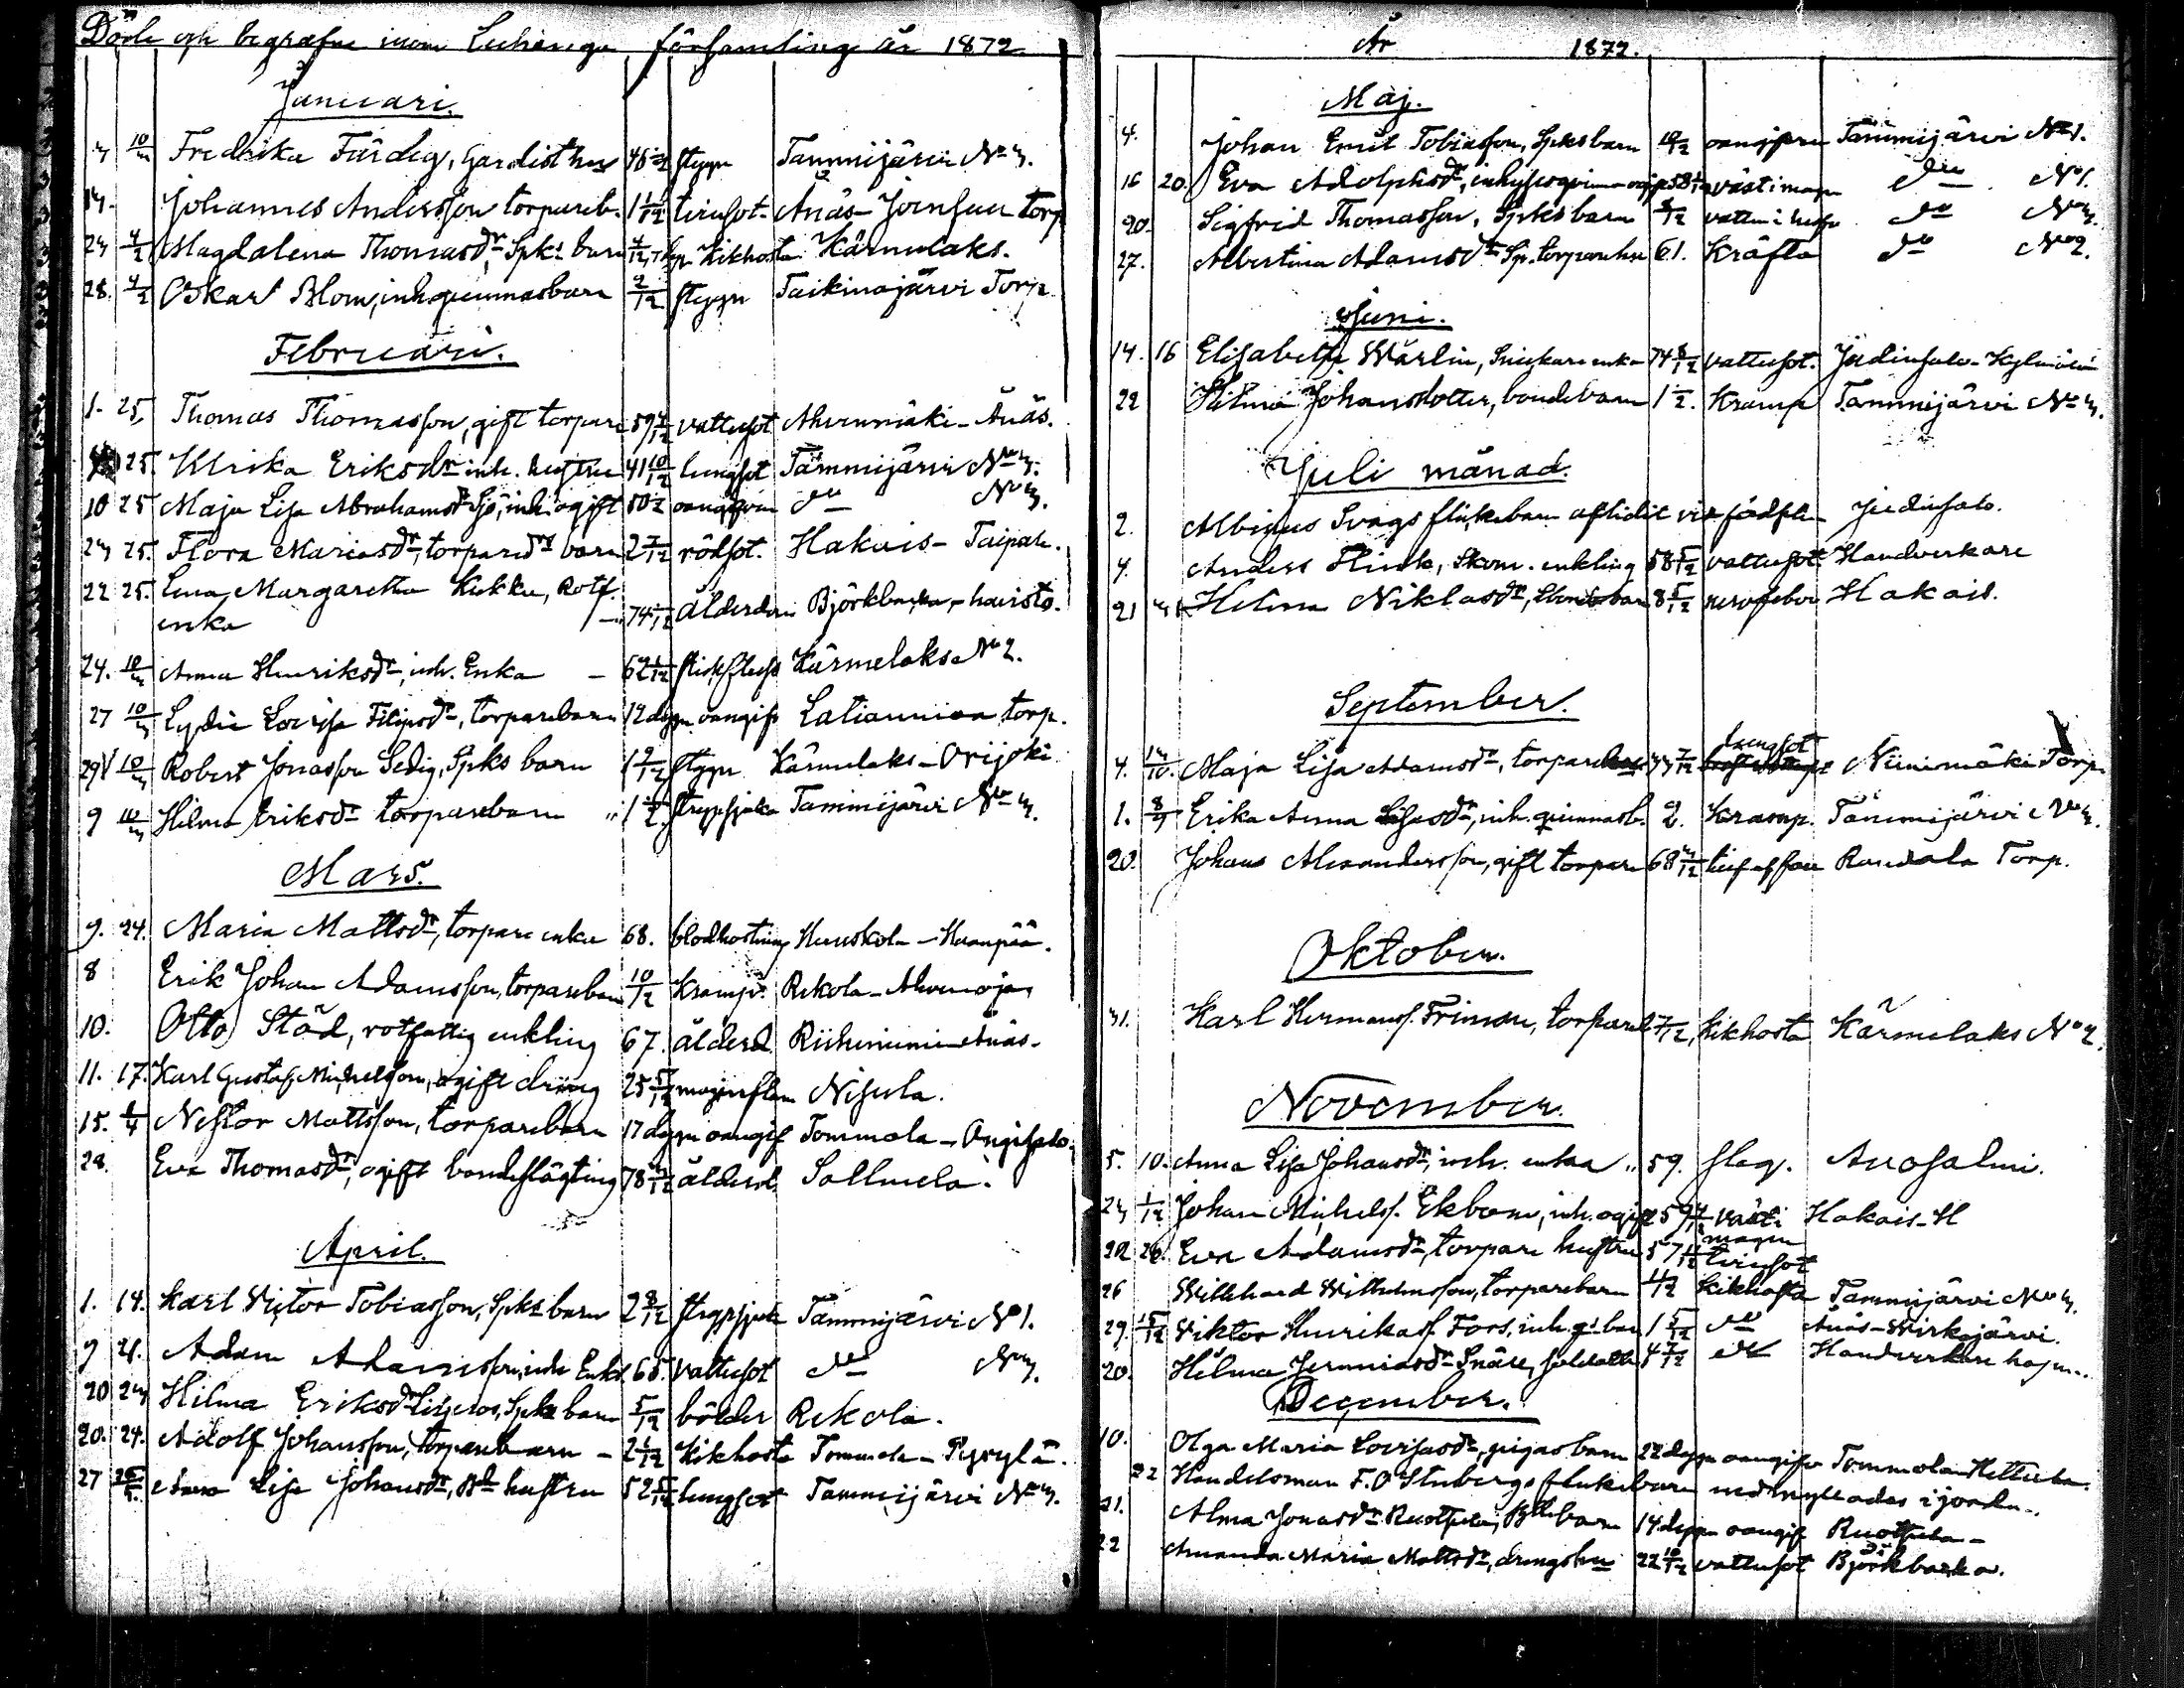 Döde och begrafne inom Luhanga församling år 1872
Januari.
3 10/3 Fredrika Färdig, Gardist hu 46 stygn Tammijärvi No 3.
14. Johannes Andersson torpareb. 1 1/12 tvinsot Änäs- torp
23 4/2 Magdalena Thomasdr, Spks barn 4/12, Kikhosta Kärmelaks.
28. 4/2 Oskar Blom, inh qvinnasbarn 2/12 stygn Taikinajärvi Torp.
Februari.
1. 25. Thomas Thomasson, gift torpare 59 4/12 vattusot Ahvenmäki- Änäs.
25 Ulrika Eriksdr inh. hustru 41 10/12 lungsot Tammijärvi No 3.
10 25 Maja Lisa Abrahamsdr Sjö, inh. ogift 50 1/2 oangifvin do No 3.
23 25. Flora Mariasdr, torparedrs barn 2 7/12 rödsot. Hakais- Taipale.
22 25. Lena Margaretha Kukka, Rotf.
enka 74 1/12 ålderdom Björkbacka-havisto.
24. 10/3 Anna Henriksdr, inh. Enka - 62 1/12 Kärmelaks No 2.
27 10/3 Lydia Lovisa Filipsdr, torparebarn 12 dygn oangif torp.
29 10/3 Robert Jonasson Sedig, Spks barn 1 9/12 stygn Kärmelaks- Orijoki
9 10/3 Hilma Eriksdr torparebarn " 1 1/2 strypsjuka Tammijärvi No 3.
Mars.
9. 24. Maria Mattsdr, torpare enka 68. blodhostning Huuskola-Haanpää.
8 Erik Johan Adamsson, torparebarn 10/12 Kramp. Rekola-Ahvenoja
10. Otto Städ, rotfattig enkling 67. ålderd. Riihiniemi Änäs-
11. 17. Karl Gustaf Michelsson, ogift dräng 25 5/12 Nisula.
15. 1/4 Nestor Mattsson, torparebarn 17 dygn oangif Tommola-
28. Eva Thomasdr, ogift bondeslägting 78 ålderd. Sallmela.
April.
1. 14. Karl Victor Tobiasson, Spks barn 2 8/12 strypsjuka Tammijärvi No 1.
9 21. Adam Adamsson, inh Enkl. 65. vattusot do No 3.
20 23 Hilma Eriksdr Spks barn 5/12 bölder Rekola.
20. 24. Adolf Johansson, torparebarn - 2 1/12 Kikhosta Tommola-Pyrylä.
27 Anna Lisa Johansdr, Bd hustru 52 5/12 lungsot Tammijärvi No 3.
År 1872.
Maj.
4. Johan Emil Tobiasson, Spks barn 10/12 oangifven Tammijärvi No 1.
16 20. Eva Adolphsdr, inhyses qvinna ogift 58 1/2 växt i magen do No 1.
20. Sigfrid Thomasson, Spks barn 8/12 vatten i hufvu do No 3.
27. Albertina Adamsdr Sp. torpare hu 61. Kräfta do No 2.
Juni.
14. 16 Elisabeth Wärlin, Snickare enka 74 8/12 vattusot. Judinsalo-
22 Hilma Johansdotter, bondebarn 1 1/2. Kramp Tammijärvi No 3.
Juli månad.
2. Albinus Svags flickebarn aflidit vid födseln Judinsalo.
4. Anders Flink, Skom. enkling 58 5/12 vattusot Handverkare
21 Helena Niklasdr, barn 8 5/12 nervfeber Hakais.
September.
4. Maja Lisa Adamsdr, torpare 43 7/12 lungsot Niinimäki Torp.
1. 8/9 Erika Anna Lisasdr, inh. qvinnasb. 2. Kramp. Tammijärvi No 3.
20. Johans Alexandersson, gift torpare 68 3/12 Randala Torp.
Oktober.
31. Karl Hermanss. Friman, torpareb 7/12, kikhosta Kärmelaks No 2.
November.
5. 10. Anna Lisa Johansdr, inh. enka " 59. slag. Avosalmi.
23 1/12 Johan Michelss. Ekbom, inh. ogift 59 växt i Hakais-H
magen
20 26. Eva Adamsdr, torpare hustru 57 11/12 tvinsot
26 Willehard Wilhelmsson, torparebarn 4/12 Kikhosta Tammijärvi No 3.
29. 15/12 Viktor Henrikss. Fors, inh. barn 1 5/12 do Änäs-Wirkajärvi.
20. Hilma Jeremiasdr Snäre, soldatb 4 7/12 do Handverkare
December.
10. Olga Maria Lovisasdr, pigas barn 22 dygn oangifv Tommola-
22 Handelsman F.O Stubergs flickebarn nedmyllades i jorden.
21. Alma Jonasdr Ruottula, barn 14 dygn oangif Ruottula-
22 Amanda Maria Mattsdr, drengshu 22 10/12 vattusot Björkbacka.